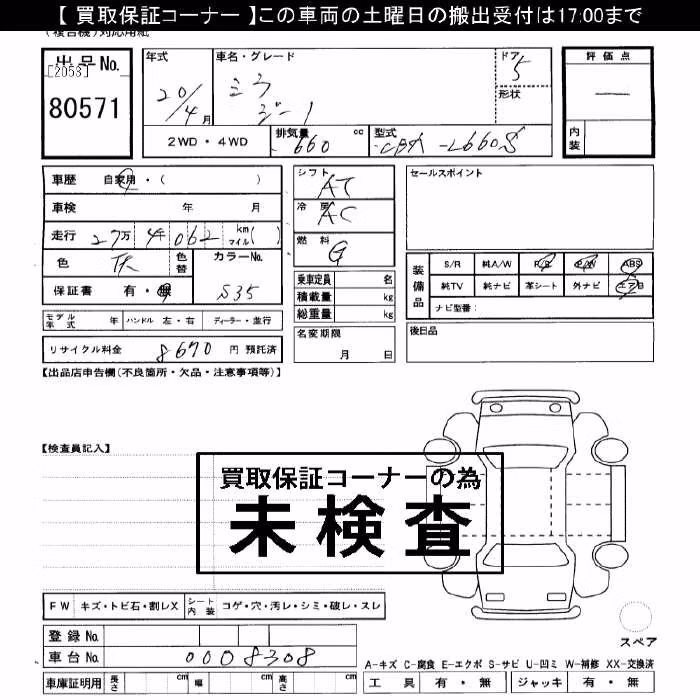 【 買取保証コーナー 】この車両の土曜日の搬出受付は17:00まで
(複合機)対応用紙
出品No.
[2053]
80571
年式 車名・グレード ドア
20/4月 ミラ 5
ジーノ 形状
2WD・4WD 排気量 660 cc 型式 CBA-L660S
評価点
―
内装
車歴 自家用・( )
車検 年 月
走行 27万 4千062 km マイル( )
色 灰 色替 カラーNo.
保証書 有・無 S35
モデル年式 年 ハンドル 左・右 ディーラー・並行
リサイクル料金 8670 円 預託済
シフト AT
冷房 AC
燃料 G
乗車定員 名
積載量 kg
総重量 kg
名変期限
月 日
セールスポイント
装備品 S/R 純A/W P/S P/W ABS
純TV 純ナビ 革シート 外ナビ エアB
ナビ型番:
後日品
【出品店申告欄(不良箇所・欠品・注意事項等)】
【検査員記入】
買取保証コーナーの為
未検査
FW キズ・トビ石・割レX シート内装 コゲ・穴・汚レ・シミ・破レ・スレ
登録No.
車台No. 0008308
車庫証明用 長さ cm 幅 cm 高さ cm
スペア
A-キズ C-腐食 E-エクボ S-サビ U-凹ミ W-補修 XX-交換済
工具 有・無 ジャッキ 有・無